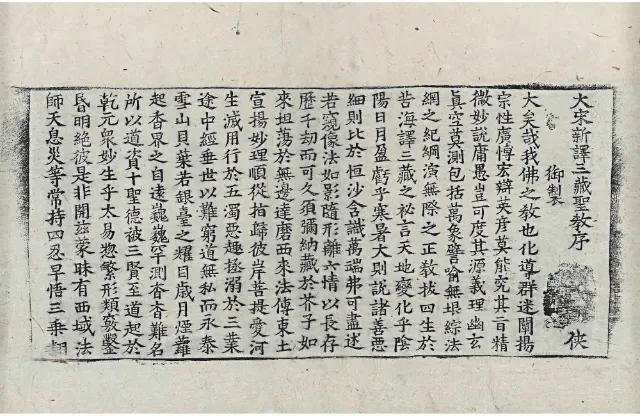 大宋新譯三藏聖教序
御製
俠
大矣哉我佛之教也化導群迷闡揚
宗性廣博宏辯英彥莫能究其旨精
微妙說庸愚豈可度其源義理幽玄
真空莫測包括萬象譬喻無垠綜法
網之紀綱演無際之正教拔四生於
苦海譯三藏之祕言天地變化乎陰
陽日月盈虧乎寒暑大則說諸善惡
細則比於恒沙含識萬端弗可盡述
若窺像法如影隨形離六情以長存
歷千劫而可久須彌納藏於芥子如
來坦蕩於無邊達磨西來法傳東土
宣揚妙理順從指歸彼岸菩提愛河
生滅用行於五濁惡趣拯溺於三業
途中經垂世以難窮道無私而永泰
雪山貝葉若銀臺之耀目歲月煙蘿
起香界之自遠巍巍罕測杳杳難名
所以道資十聖德被三賢至道起於
乾元眾妙生乎太易惣繁形類竅鑿
昏明絕彼是非開茲蒙昧有西域法
師天息災等常持四忍早悟三乘翻